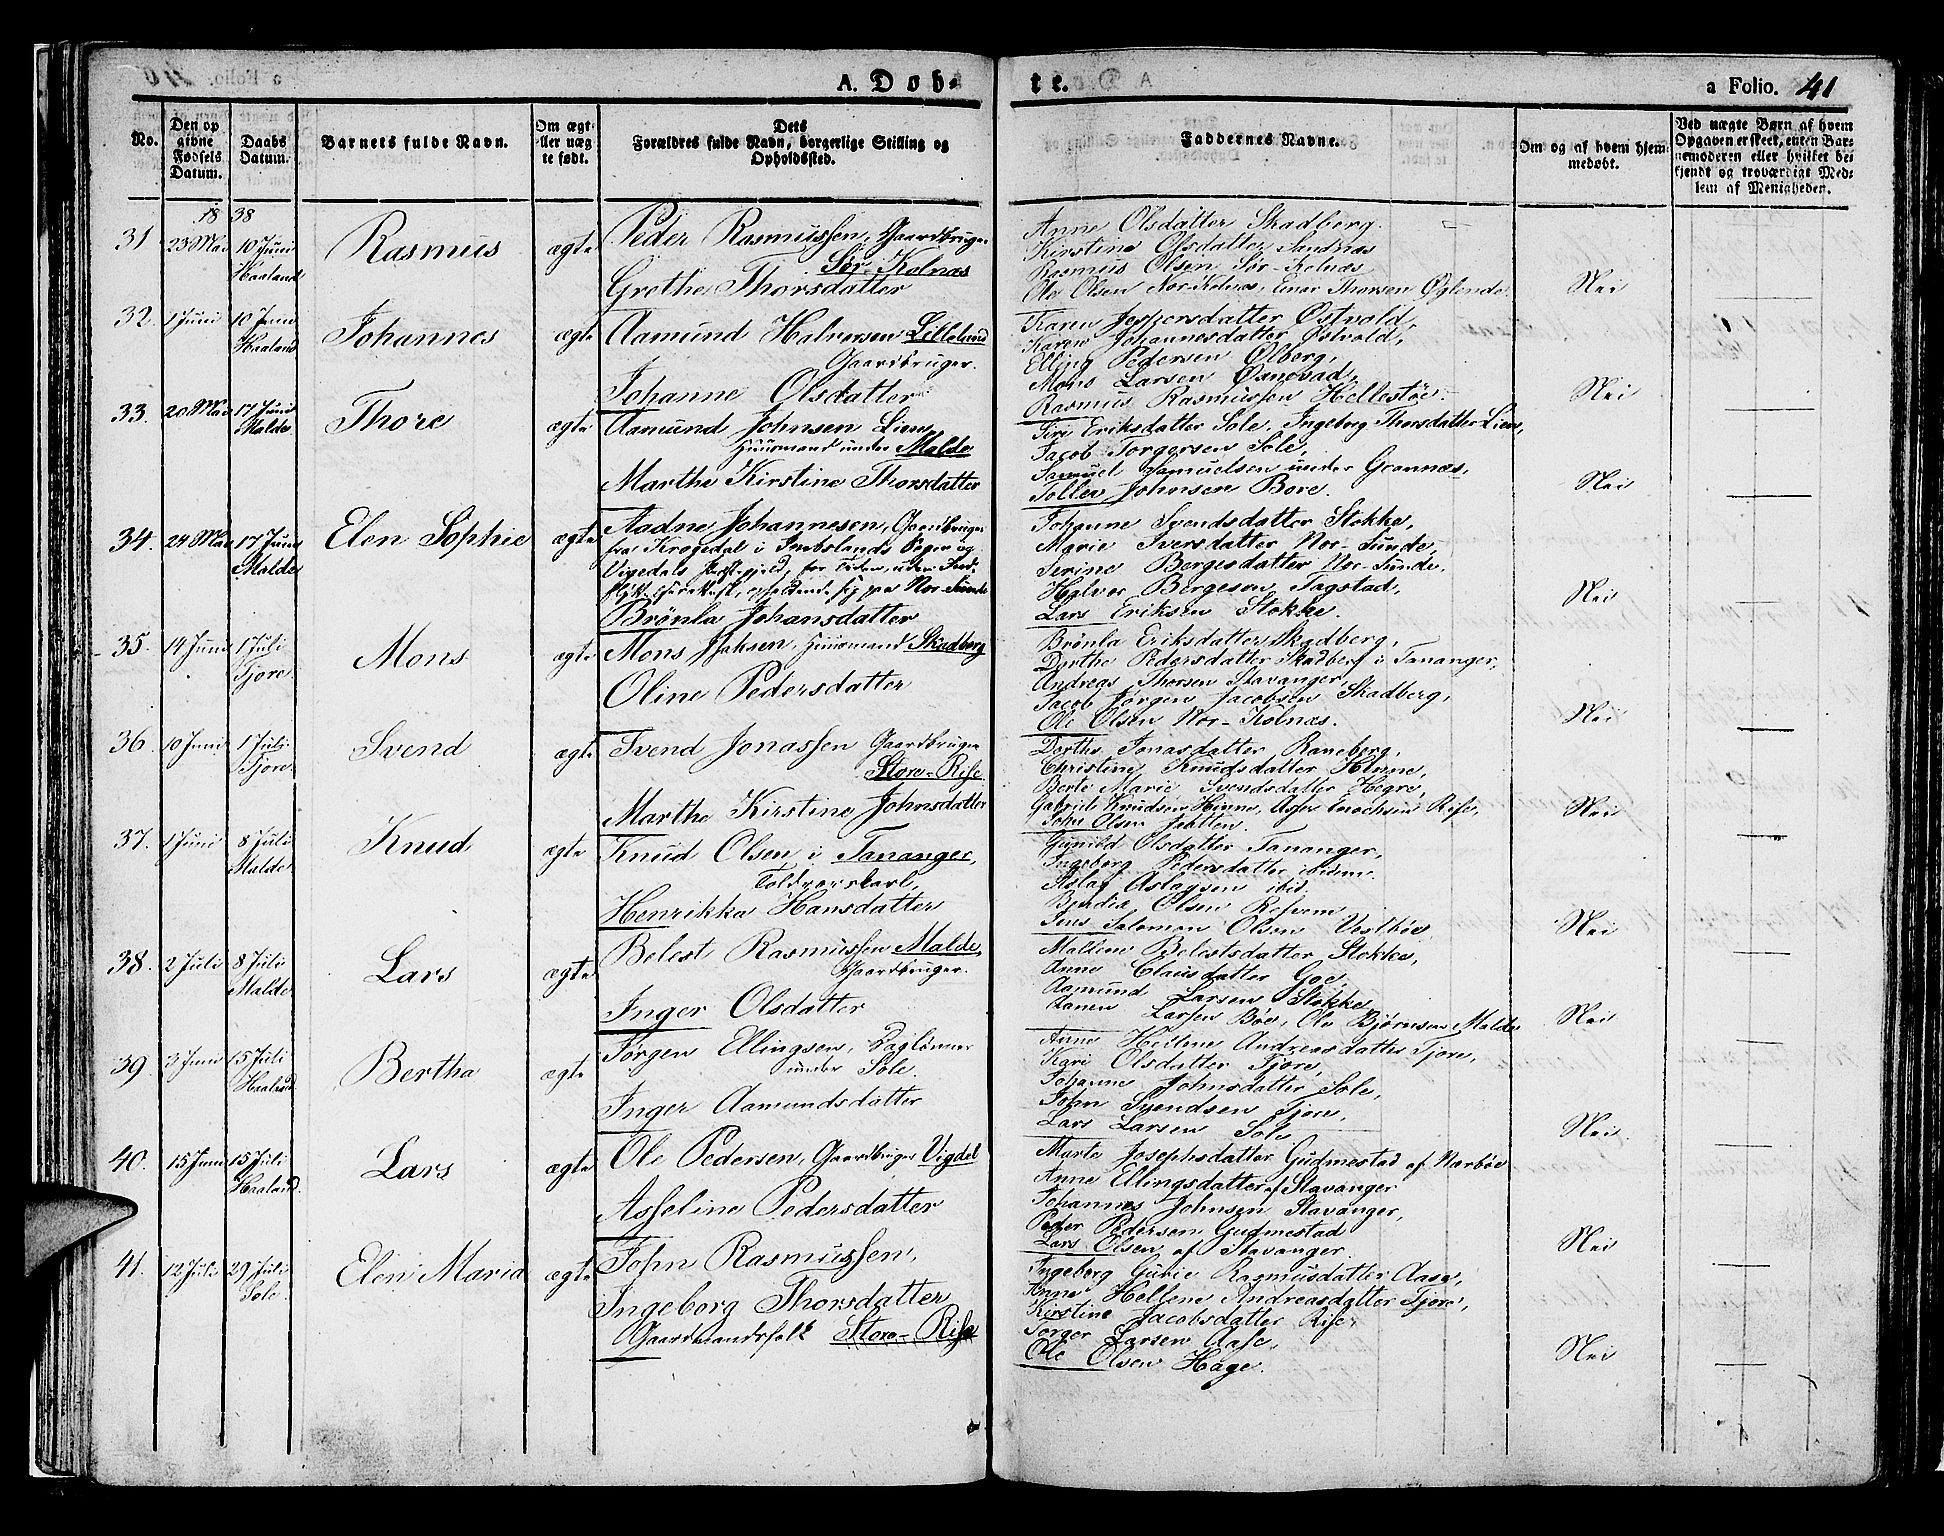 A. Døb-
te.
a Folio. 41
No.
Den op
givne
Fødsels
Datum.
Daabs
Datum.
Barnets fulde Navn.
Om ægt-
eller uæg
te født.
Dets
Forældres fulde Navn, borgerlige Stilling og
Opholdssted.
Faddernes Navne.
Om og af hvem hjem-
medøbt.
Ved uægte Børn af hvem
Opgaven er skeet, enten Bar-
nemoderen eller hvilket be-
kjendt og troværdigt Med-
lem af Menigheden.
1838
31 23 Mai 10 Juni
Haaland
Rasmus
ægte
Peder Rasmussen, Gaardbruger
Sør-Kolnæs
Grethe Thorsdatter
Anne Olsdatter Skadberg.
Kirstine Olsdatter Sandnæs
Rasmus Olsen Sør-Kolnæs
Ole Olsen Nor-Kolnæs, Einar Thorsen Øglende.
Nei
32. 1 Juni 10 Juni
Haaland
Johannes
ægte
Aamund Halvorsen Lilleland
Gaardbruger.
Johanne Olsdatter
Karen Jospersdatter Østvold,
Karen Johannesdatter Østvold,
Elling Pedersen Ølberg,
Mons Larsen Øxnevad,
Rasmus Rasmussen Hellestøe.
Nei
33. 20 Mai 17 Juni
Malde
Thore
ægte
Aamund Johnsen Lien
Huusmand under Malde
Marthe Kirstine Thorsdatter
Siri Eriksdatter Sole, Ingeborg Thorsdatter Lien,
Jacob Torgersen Sole,
Samuel Samuelsen under Grannæs,
Tollev Johnsen Bore.
Nei
34. 24 Mai 17 Juni
Malde
Elen Sophie
ægte
Aadne Johannesen, Gaardbruger
fra Krogedal i
Vigedals Præstegjeld, for Tiden, uden
opholdende sig paa Nor-Sunde
Brønla Johansdatter
Johanne Svendsdatter Stokke,
Marie Iversdatter Nor-Sunde,
Serine Børgesdatter Nor-Sunde,
Halvor Børgesen Tagstad,
Lars Eriksen Stokke.
Nei
35. 14 Juni 1 Juli
Tjore
Mons
ægte
Mons Isaksen, Huusmand Skadberg
Oline Pedersdatter
Brønla Eriksdatter Skadberg,
Dorthe Pedersdatter Skadberg i Tananger,
Andreas Thorsen Stavanger,
Jacob Jørgen Jacobsen Skadberg,
Ole Olsen Nor-Kolnæs.
Nei
36. 10 Juni 1 Juli
Tjore.
Svend
ægte
Svend Jonassen Gaardbruger
Store-Risse
Marthe Kirstine Johnsdatter
Dorthe Jonasdatter Raneberg,
Christine Knudsdatter Hinne,
Berte Marie Svendsdatter Hegre,
Gabriel Knudsen Hinne, Asser Enochsen Risse,
John Olsen Jaatten.
Nei
37. 1 Juni 8 Juli
Malde
Knud
ægte
Knud Olsen i Tananger,
Toldvorskarl,
Henrikka Hansdatter
Gunild Olsdatter Tananger,
Ingeborg Pedersdatter ibidem.
Aslag Aslagsen ibid.
Bendix Olsen Refven
Jens Salomon Olsen Vestbøe,
Nei
38. 2 Juli 8 Juli
Malde
Lars
ægte
Belest Rasmussen Malde,
Gaardbruger.
Inger Olsdatter
Mallene Belestsdatter Stokke,
Anne Clausdatter Goe,
Aamund Larsen Stokke
Larsen Bøe, Ole Bjørnsen Malde
Nei
39. 3 Juni 15 Juli
Haaland
Bertha
ægte
Jørgen Ellingsen, Daglønner
under Sole.
Inger Aamundsdatter
Anne Hellene Andreasdatter Tjore,
Kari Olsdatter Tjore,
Johanne Johnsdatter Sole,
John Svendsen Tjore,
Lars Larsen Sole
Nei.
40. 15 Juni 15 Juli
Haaland.
Lars
ægte
Ole Pedersen, Gaardbruger Vigdel
Asseline Pedersdatter
Marte Josephsdatter Gudmestad af Narbøe
Anne Ellingsdatter af Stavanger
Johannes Johnsen Stavanger,
Peder Pedersen Gudmestad
Lars Olsen af Stavanger.
Nei
41. 12 Juli 29 Juli
Sole.
Elen Maria
ægte
John Rasmussen,
Ingeborg Thorsdatter
Gaardmandsfolk Store-Risse
Ingeborg Gurie Rasmusdatter Aase,
Anne Hellene Andreasdatter Tjore,
Kirstine Jacobsdatter Risse,
Torger Larsen Aase,
Ole Olsen Hage.
Nei